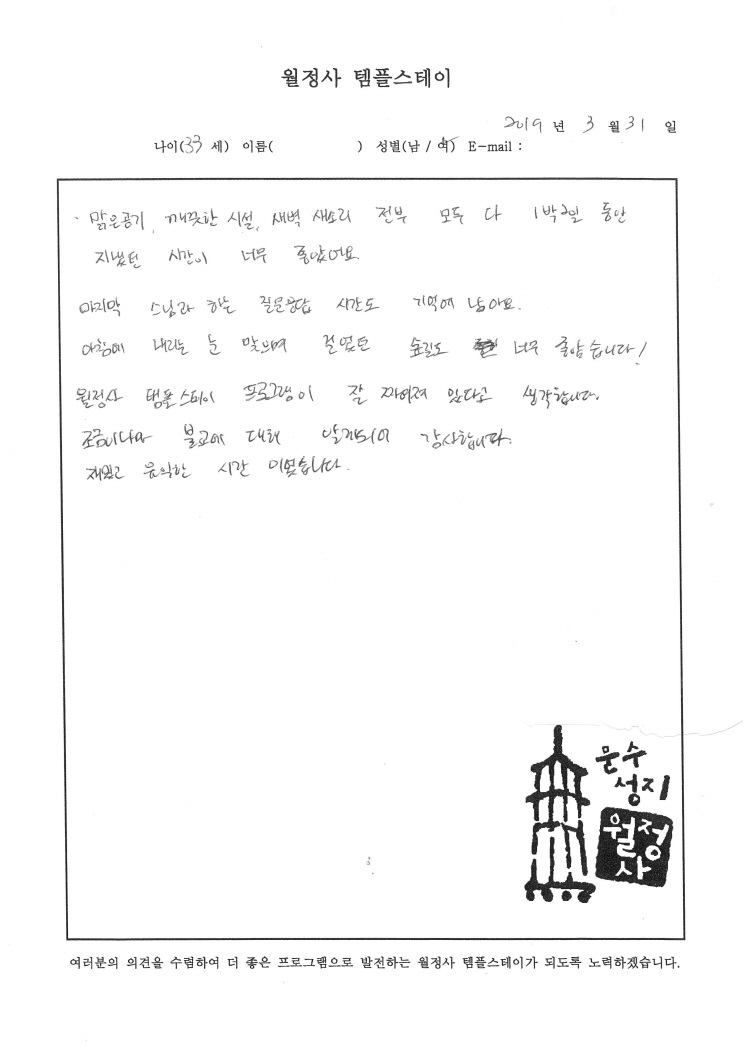 월정사 템플스테이
2019 년 3 월 31 일
나이(33 세) 이름( ) 성별(남 / 여) E-mail :
· 맑은공기, 깨끗한 시설, 새벽 새소리 전부 모두 다 1박2일 동안
지냈던 시간이 너무 좋았어요.
마지막 스님과 하는 질문응답 시간도 기억에 남아요.
아침에 내리는 눈 맞으며 걸었던 숲길도 너무 좋았습니다!
월정사 탬플스테이 프로그램이 잘 짜여져 있다고 생각합니다.
조금이나마 불교에 대해 알게되어 감사합니다.
재밌고 유익한 시간 이었습니다.
문수
성지
월정
사
여러분의 의견을 수렴하여 더 좋은 프로그램으로 발전하는 월정사 템플스테이가 되도록 노력하겠습니다.